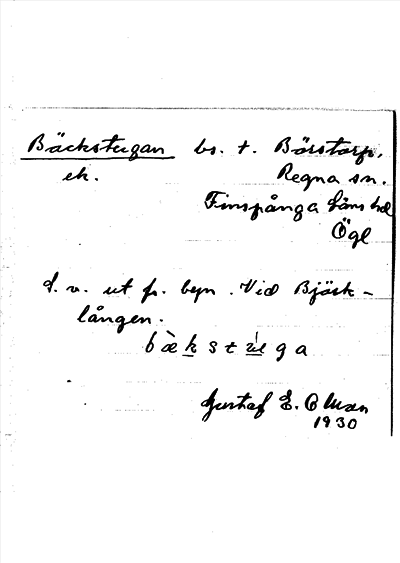 Bäckstugan bs. t. Börstorp,
ek. Regna sn.
Finspånga läns hd
Ögl
d. v. ut fr. byn. Vid Björk-
lången.
bækstuga
Gustaf E. Olman
1930